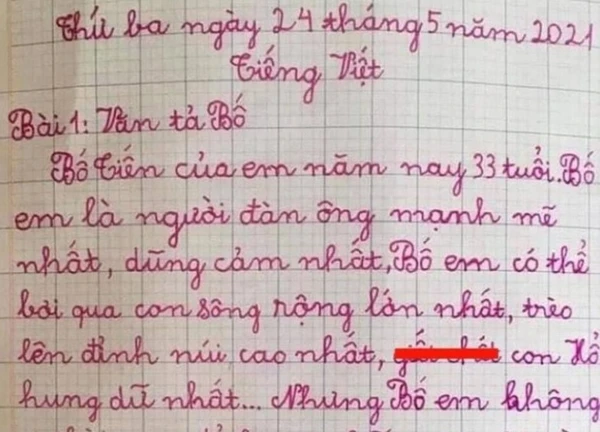 Thứ ba ngày 24 tháng 5 năm 2021
Tiếng Việt
Bài 1: Văn tả Bố
Bố Tiến của em năm nay 33 tuổi. Bố
em là người đàn ông mạnh mẽ
nhất, dũng cảm nhất, Bố em có thể
bơi qua con sông rộng lớn nhất, trèo
lên đỉnh núi cao nhất, con Hổ
hung dữ nhất... Nhưng Bố em không